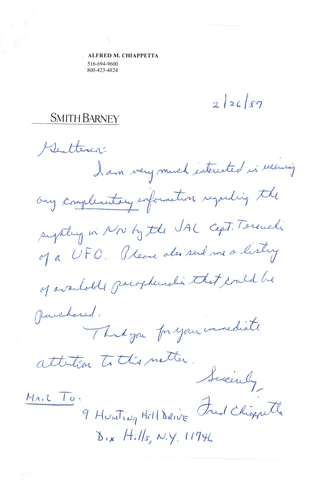 ALFRED M. CHIAPPETTA
516-694-9600
800-423-4824
SMITH BARNEY
2/26/87
Gentlemen:
I am very much interested in receiving
any complimentary information regarding the
sighting in Nov by the JAL Capt. Terauchi
of a UFO. Please also send me a listing
of available paraphernalia that could be
purchased.
Thank you for your immediate
attention to this matter.
Sincerely,
Fred Chiappetta
MAIL TO:
9 HUNTING HILL DRIVE
DIX HILLS, N.Y. 11746